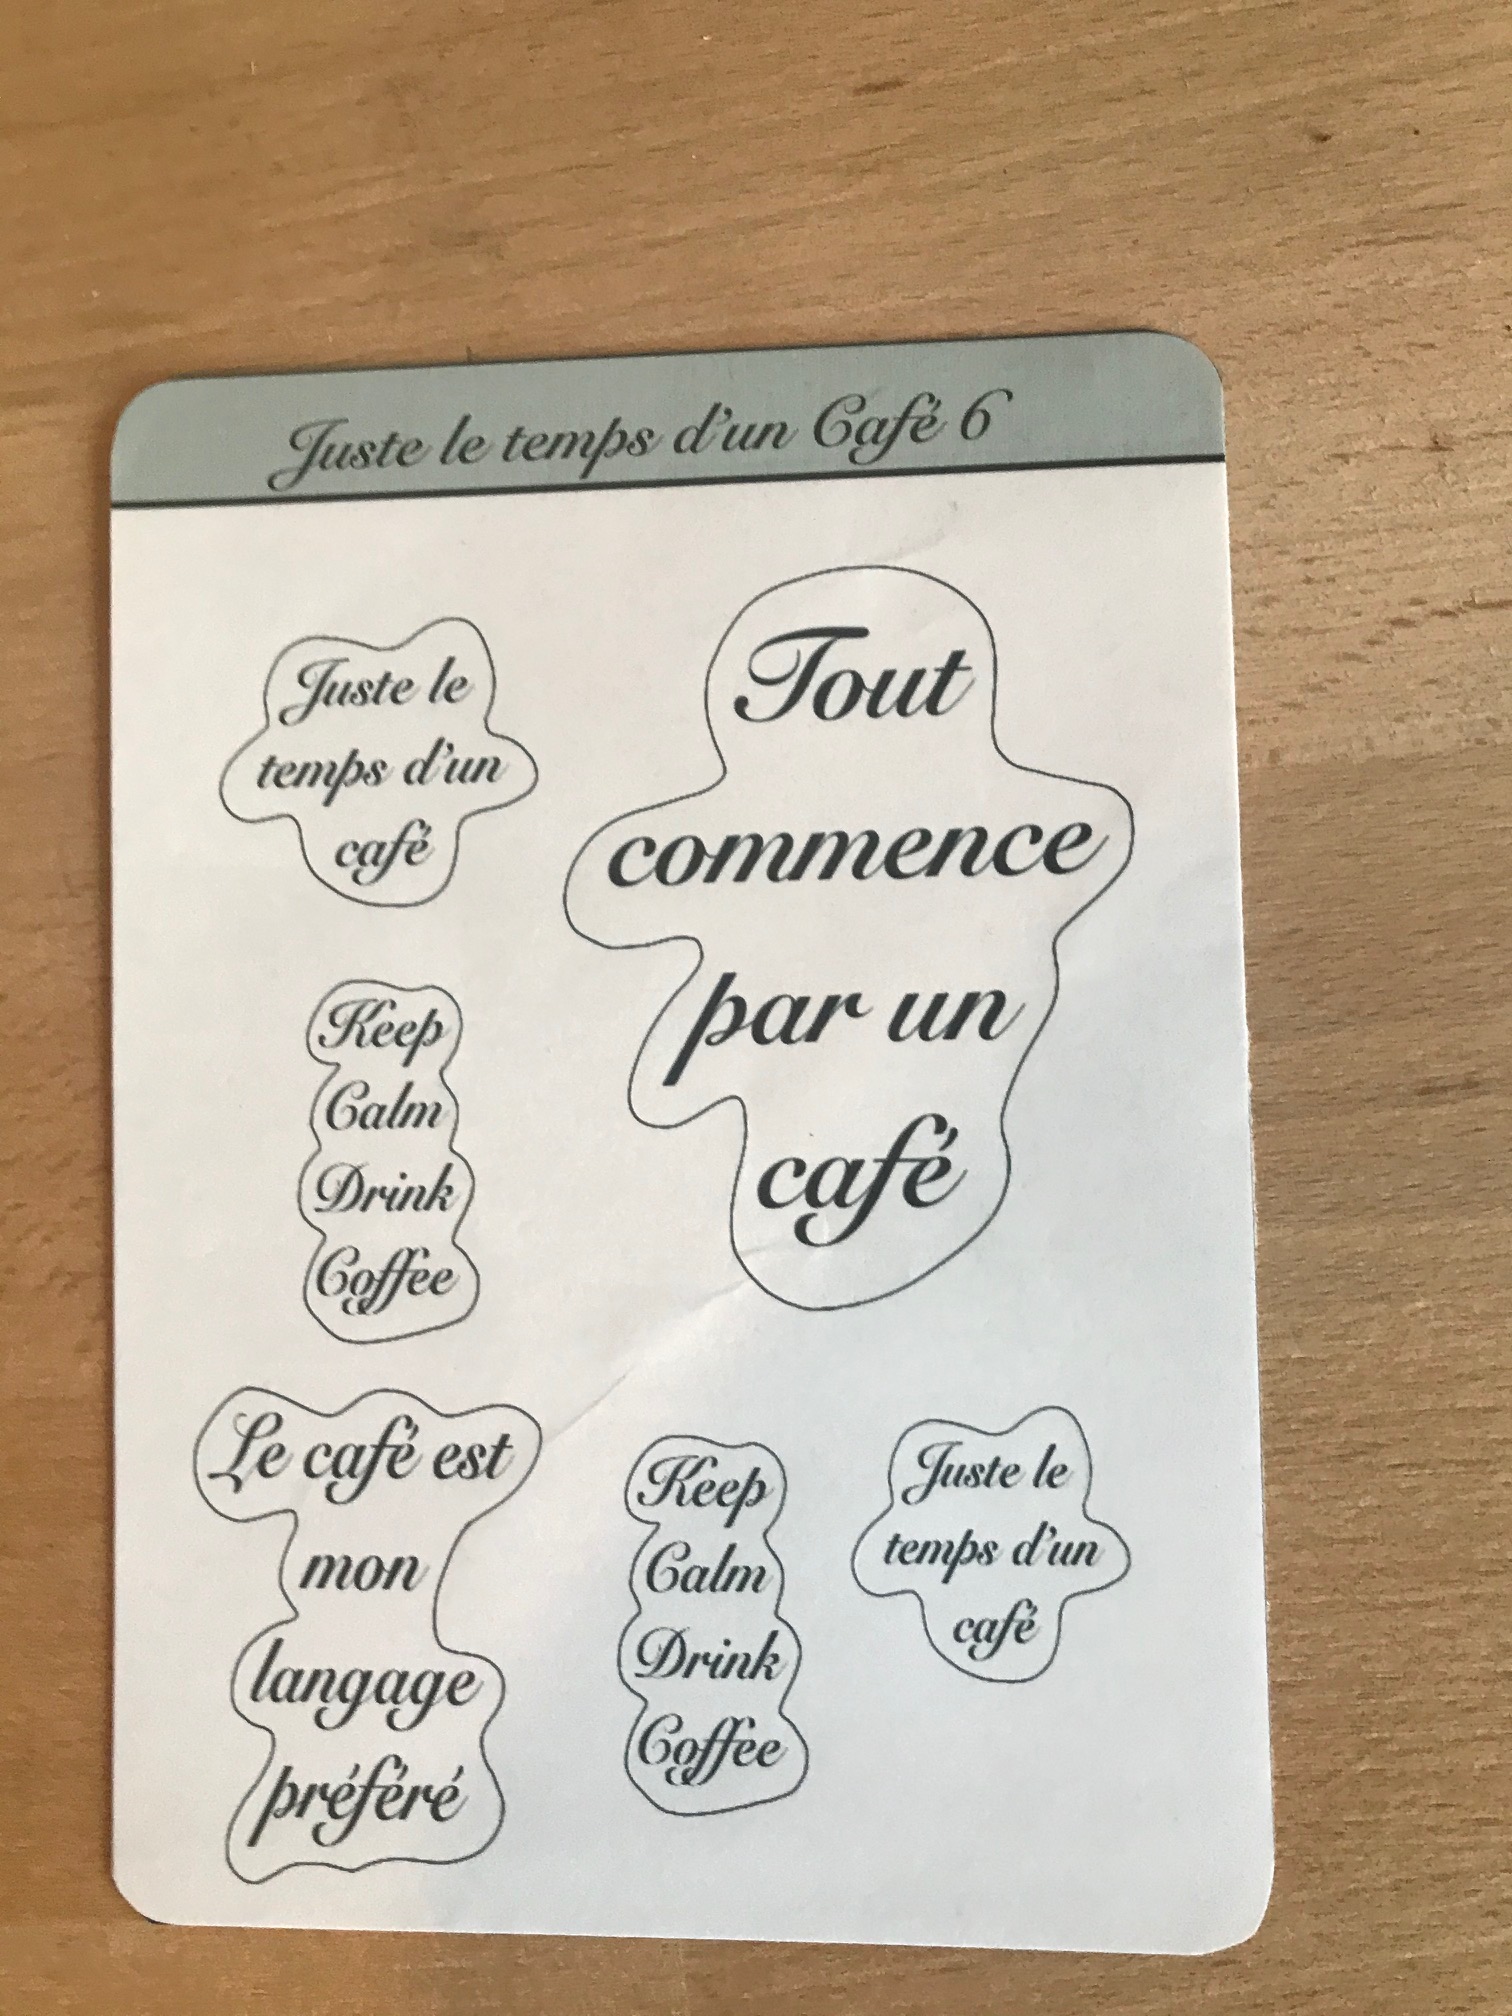 Juste le temps d'un Café 6
Juste le
temps d'un
café
Tout
commence
par un
café
Keep
Calm
Drink
Coffee
Le café est
mon
langage
préféré
Keep
Calm
Drink
Coffee
Juste le
temps d'un
café